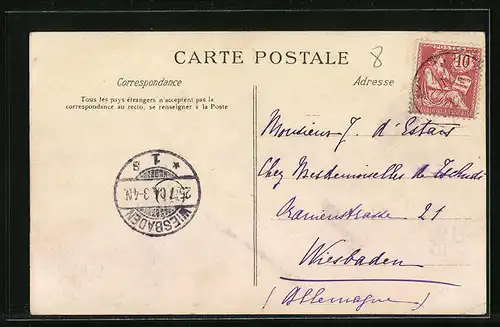 CARTE POSTALE
8
Correspondance
Adresse
Tous les pays étrangers n'acceptent pas la
correspondance au recto, se renseigner à la Poste
POSTES
10
Monsieur J. d'Estais
Chez Mesdemoiselles de Tschudi
strasse 21
Wiesbaden
(Allemagne)
* 1 8
25.7.04. 3-4N.
WIESBADEN